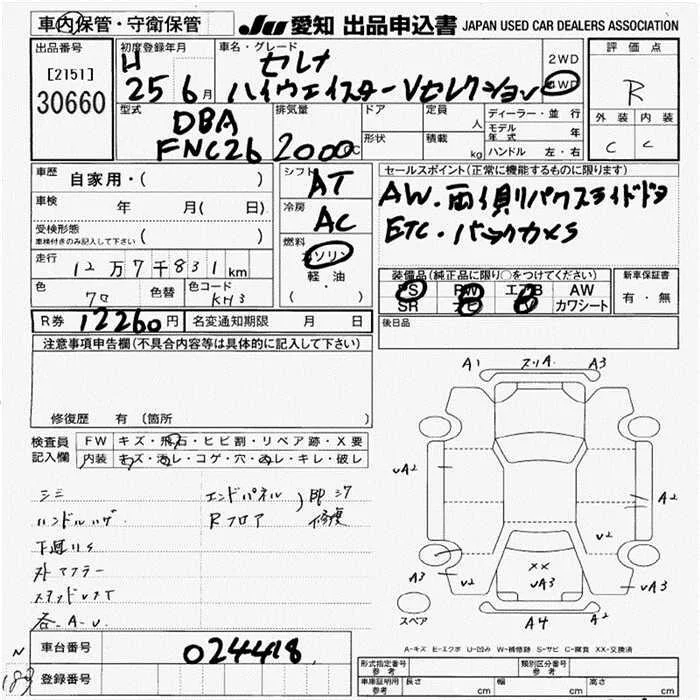 車内保管・守衛保管
JU 愛知 出品申込書 JAPAN USED CAR DEALERS ASSOCIATION
出品番号
[2151]
30660
初度登録年月
H
25 6月
車名・グレード
セレナ
ハイウェイスターVセレクション
2WD
4WD
評価点
R
外装 内装
C C
型式
DBA
FNC26
排気量
2000cc
ドア
形状
定員
人
積載
kg
ディーラー・並行
モデル年式 年
ハンドル 左・右
車歴 自家用・( )
車検 年 月( 日)
受検形態
車検付きのみ記入して下さい ( )
走行 12万7千831km
色 クロ 色替 色コード KH3
シフト
AT
冷房
AC
燃料
ガソリン
軽・油
( )
セールスポイント(正常に機能するものに限ります)
AW・両側パワスライドドア
ETC・バックカメラ
装備品(純正品に限り○をつけてください)
PS PW エアB AW
SR ナビ カワシート
新車保証書
有・無
R券 12260円 名変通知期限 月 日
後日品
注意事項申告欄(不具合内容等は具体的に記入して下さい)
修復歴 有 (箇所
検査員記入欄
FW キズ・飛石・ヒビ割・リペア跡・X要
内装 キズ・汚レ・コゲ・穴・ヌレ・キレ・破レ
エンドパネル
Rフロア
修復
ハンドル
下廻りS
外マフラー
各-A-U
A1 A3
UA2
A2
U2
A3 U2
XX
UA3
UA3
A4 A2
スペア
A-キズ E-エクボ U-凹み W-補修跡 S-サビ C-腐食 XX-交換済
車台番号 024418
登録番号
形式指定番号 参考
類別区分番号 参考
車庫証明用 参考 長さ cm 幅 cm 高さ cm